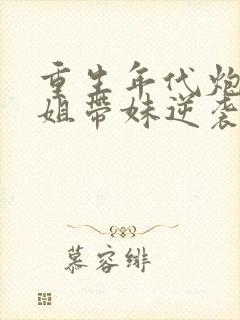 重生年代炮
姐带妹逆袭
慕容绯